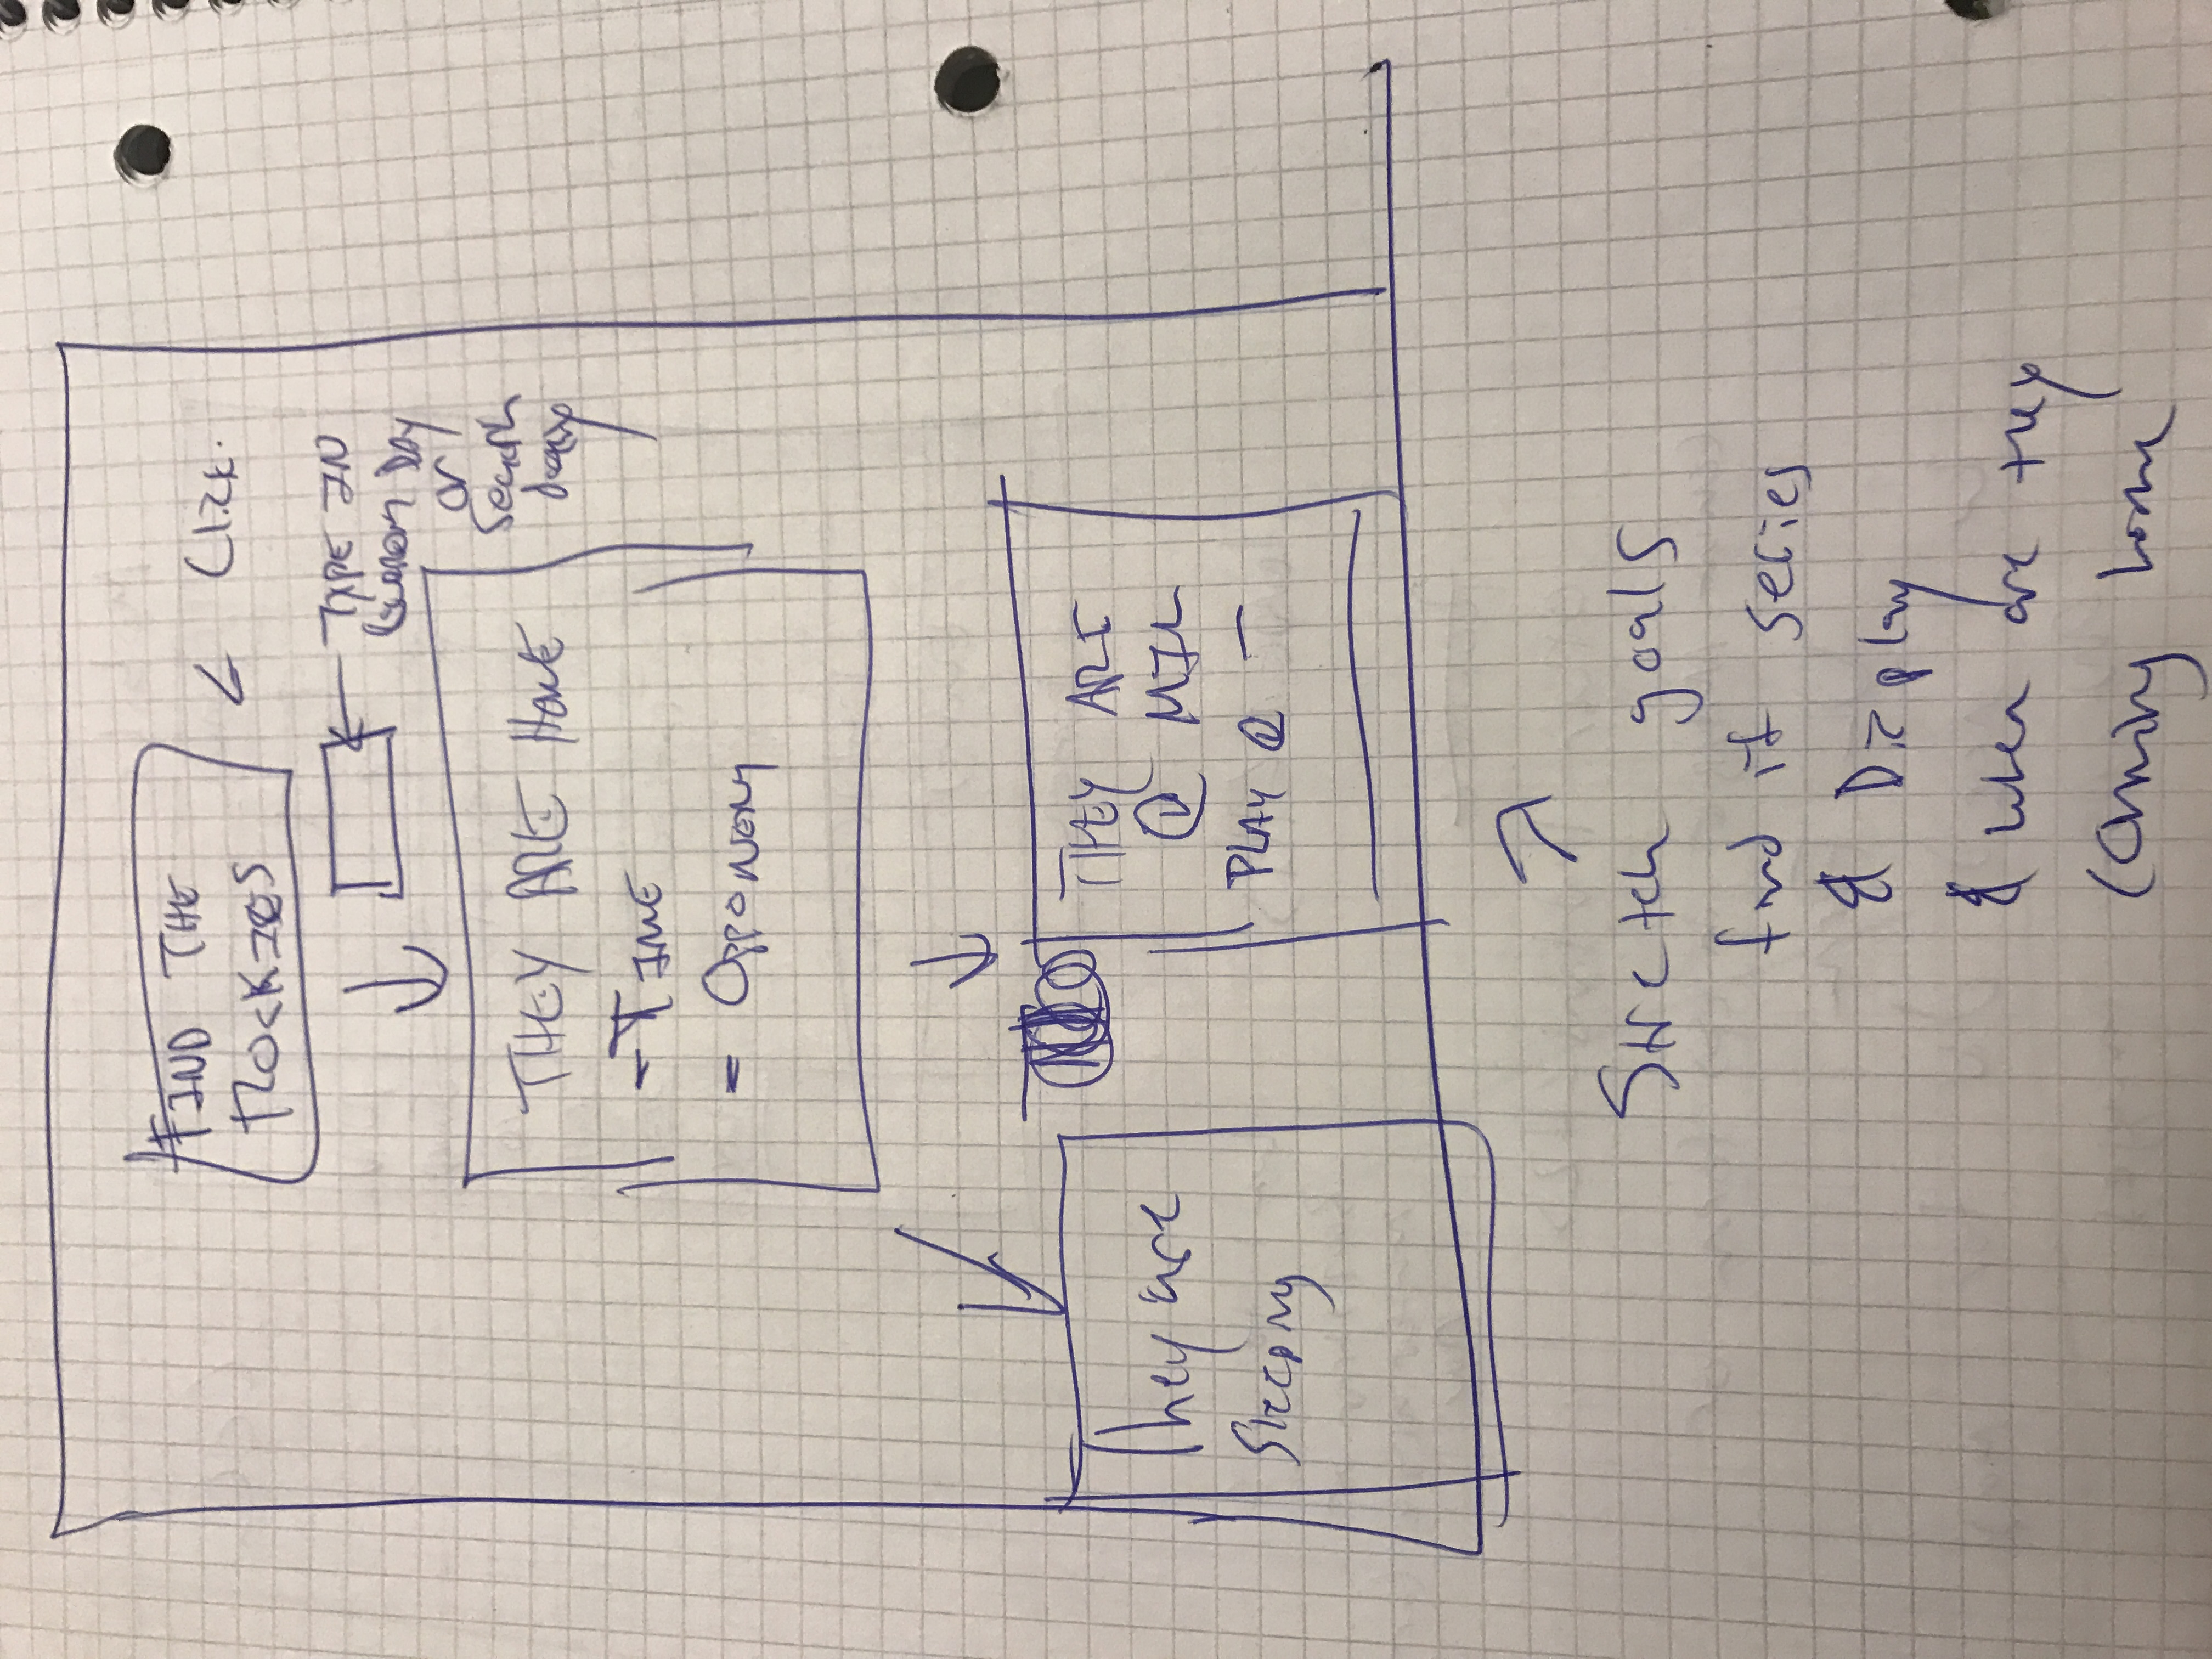 FIND THE
ROCKIES
< Click.
TYPE IN
Day
or
Search
THEY ARE HOME
- TIME
- OPPONENT
They are
Sleeping
THEY ARE
@ MIL
PLAY @ —
Stretch goals
find if series
& Display
& when are they
Coming home